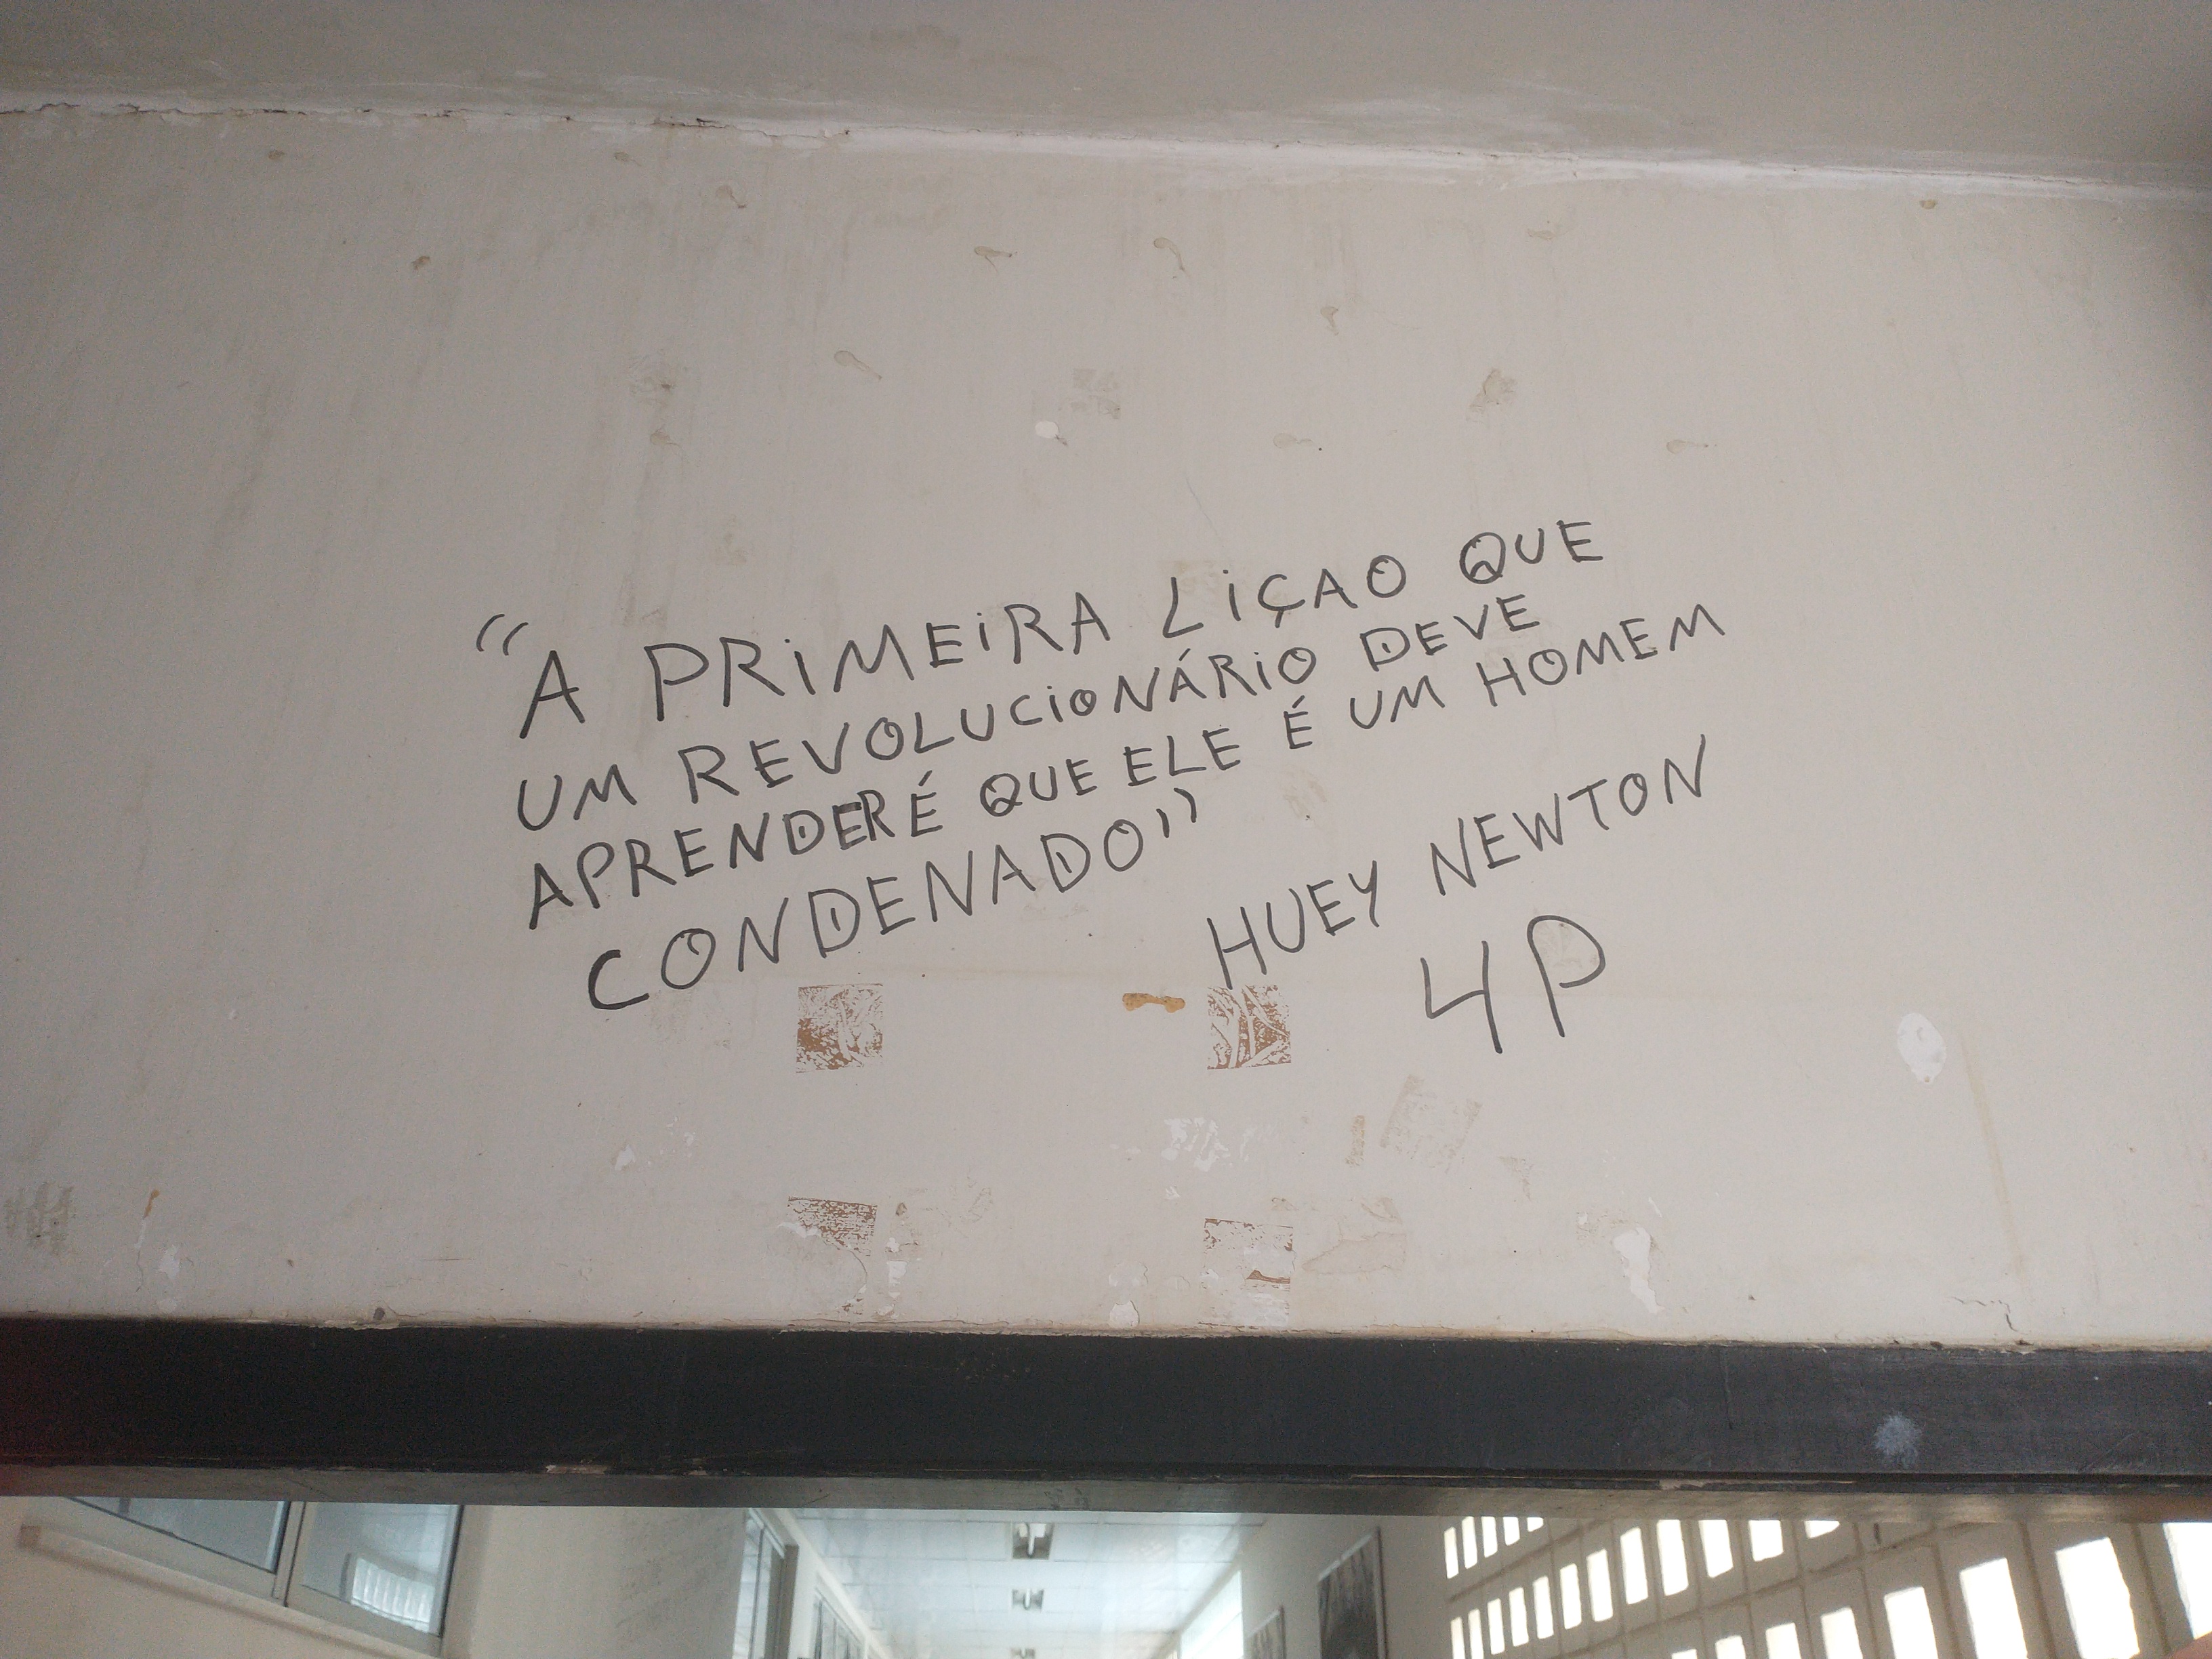 “A PRiMEiRA LiÇAO QUE
UM REVOLUCiONÁRiO DEVE
APRENDER É QUE ELE É UM HOMEM
CONDENADO”
HUEY NEWTON
4P